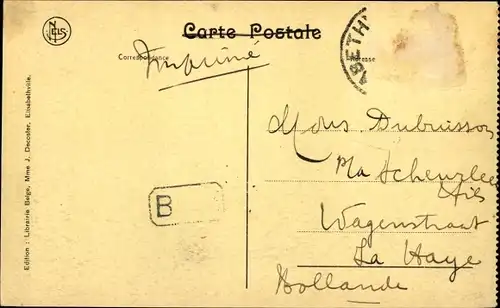 NELS
Carte Postale
Correspondance
Adresse
Imprimé
ABETH
Mons Dubuisson
p/a Scheurleer
& fils
Wagenstraat
La Haye
Hollande
B
Edition : Librairie Belge, Mme J. Decoster, Elisabethville.